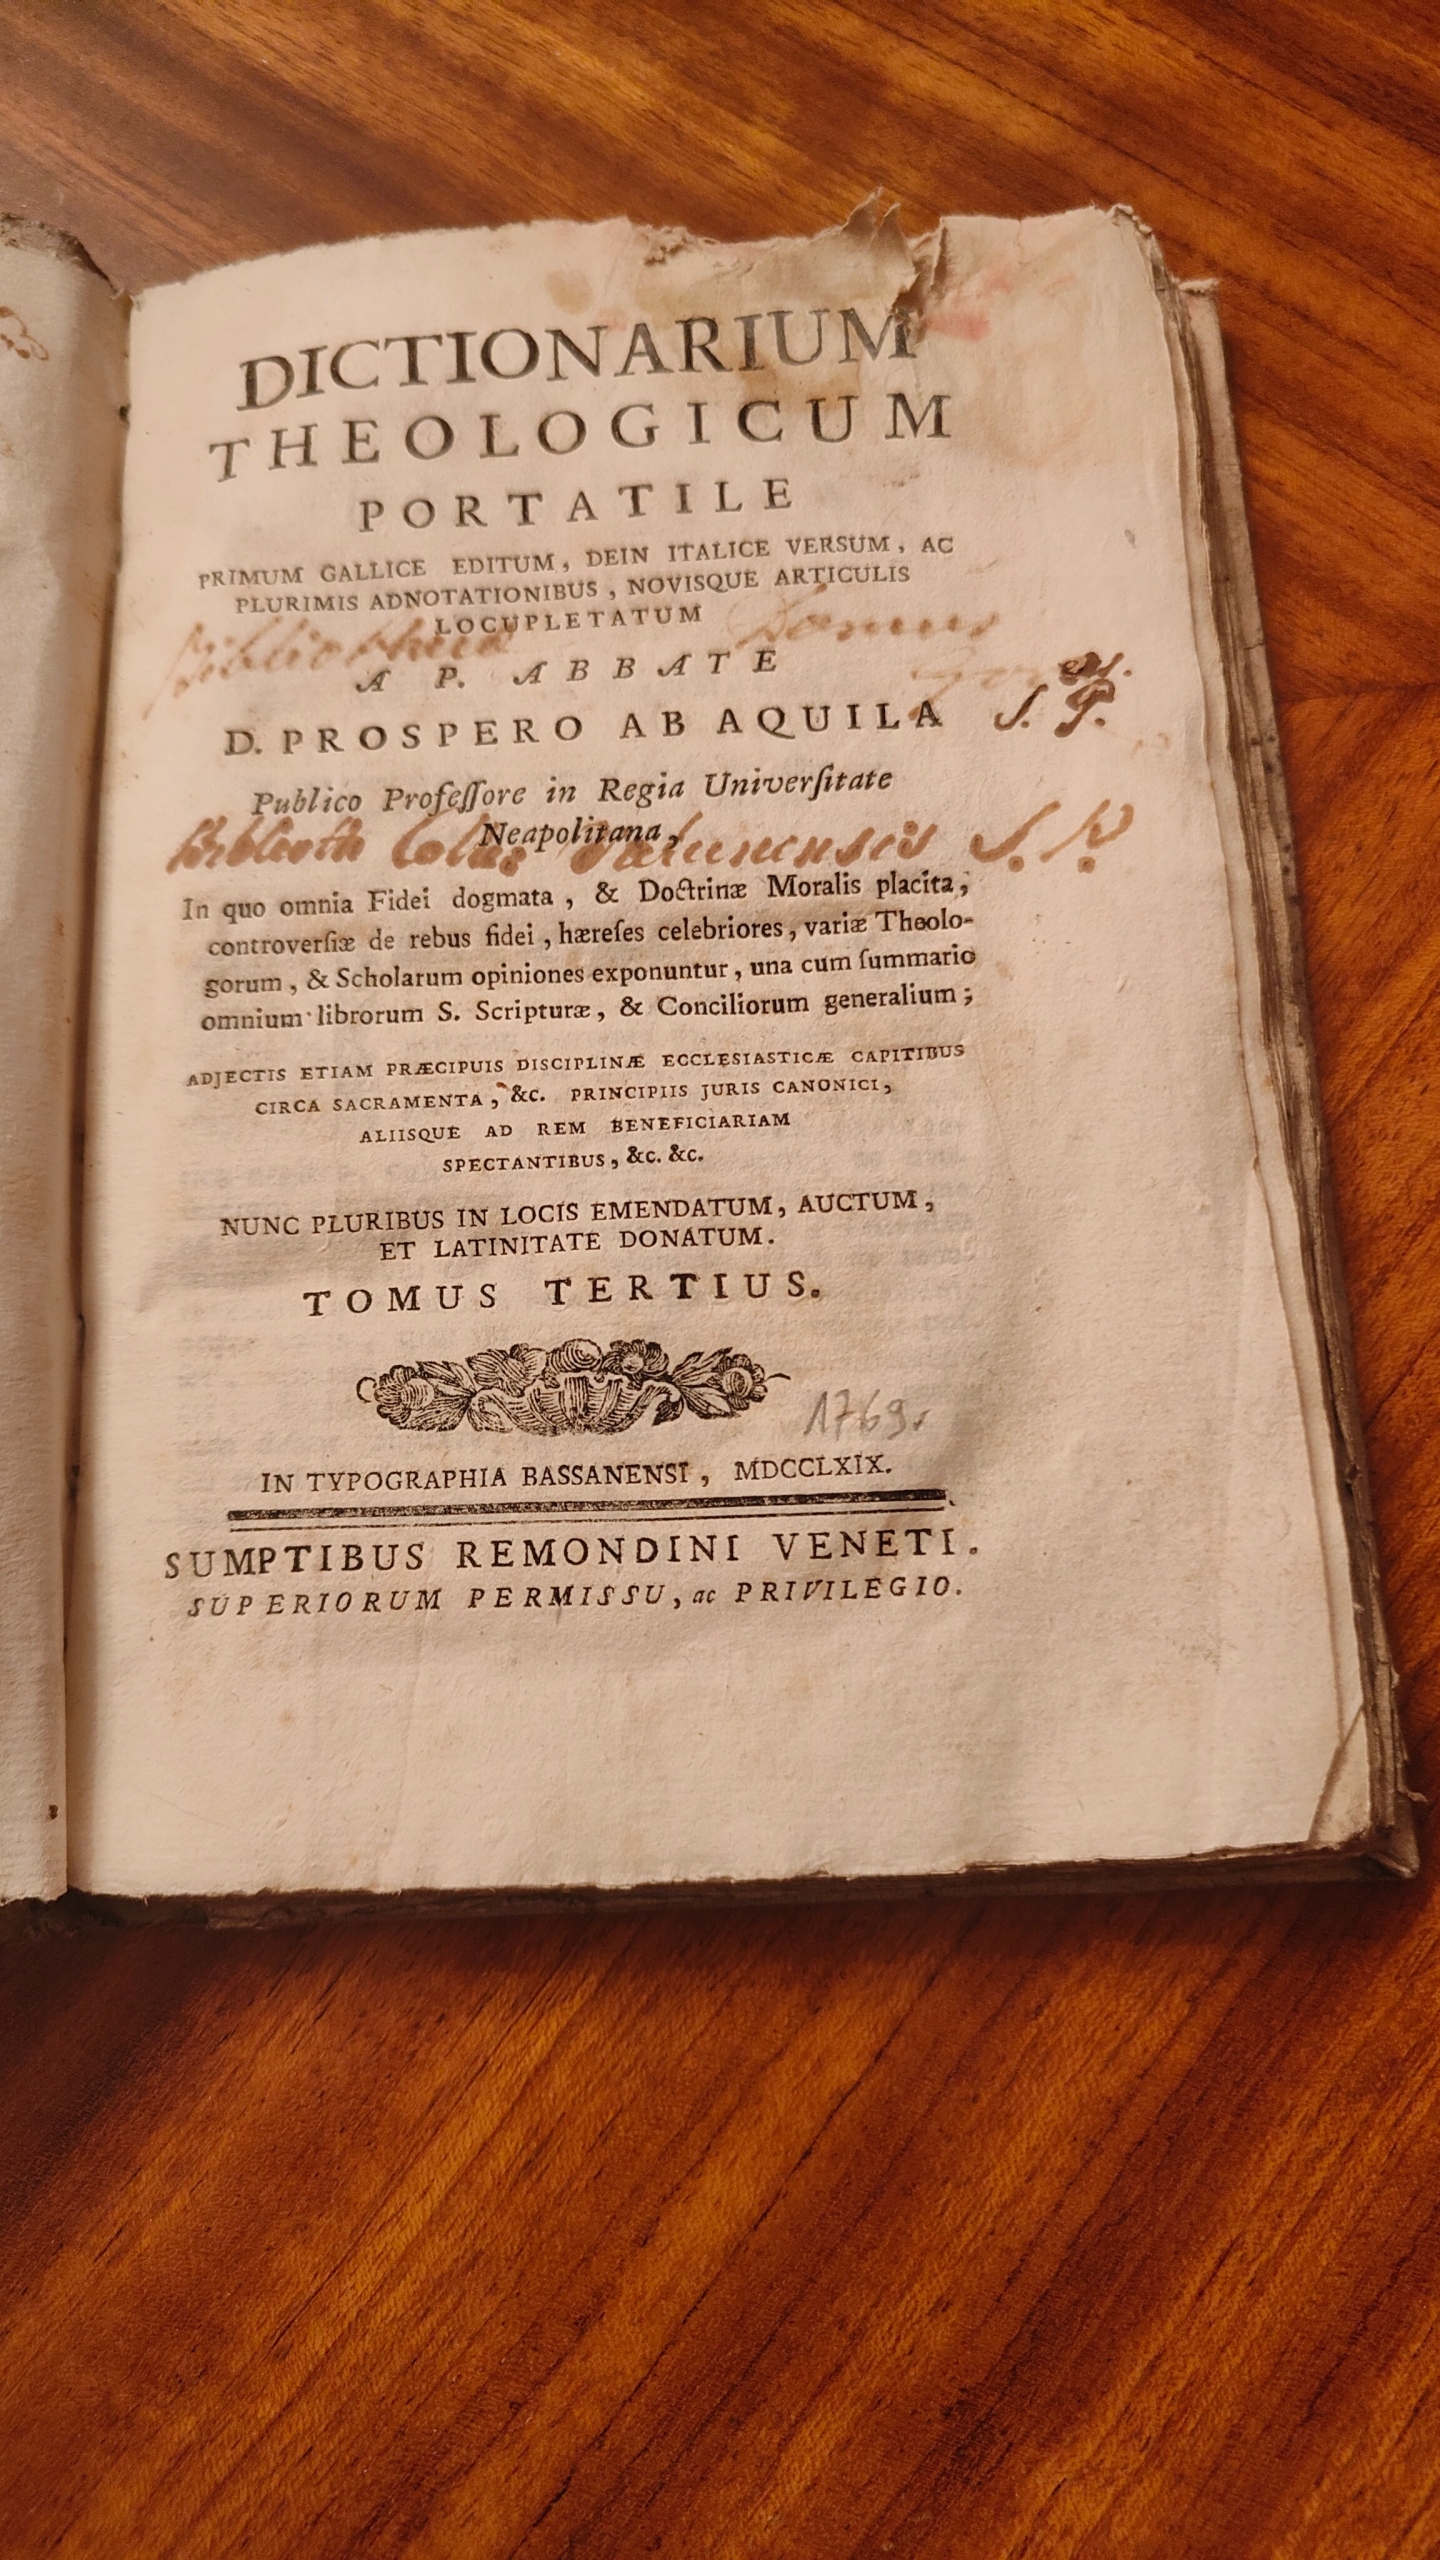 DICTIONARIUM
THEOLOGICUM
PORTATILE
PRIMUM GALLICE EDITUM, DEIN ITALICE VERSUM, AC
PLURIMIS ADNOTATIONIBUS, NOVISQUE ARTICULIS
LOCUPLETATUM
Domus
A P. ABBATE
D. PROSPERO AB AQUILA
S. P.
Publico Profeſſore in Regia Univerſitate
Neapolitana,
S.
In quo omnia Fidei dogmata, & Doctrinæ Moralis placita,
controverſiæ de rebus fidei, hæreſes celebriores, variæ Theolo-
gorum, & Scholarum opiniones exponuntur, una cum ſummario
omnium librorum S. Scripturæ, & Conciliorum generalium;
ADJECTIS ETIAM PRÆCIPUIS DISCIPLINÆ ECCLESIASTICÆ CAPITIBUS
CIRCA SACRAMENTA, &c. PRINCIPIIS JURIS CANONICI,
ALIISQUE AD REM BENEFICIARIAM
SPECTANTIBUS, &c. &c.
NUNC PLURIBUS IN LOCIS EMENDATUM, AUCTUM,
ET LATINITATE DONATUM.
TOMUS TERTIUS.
1769
IN TYPOGRAPHIA BASSANENSI, MDCCLXIX.
SUMPTIBUS REMONDINI VENETI.
SUPERIORUM PERMISSU, ac PRIVILEGIO.